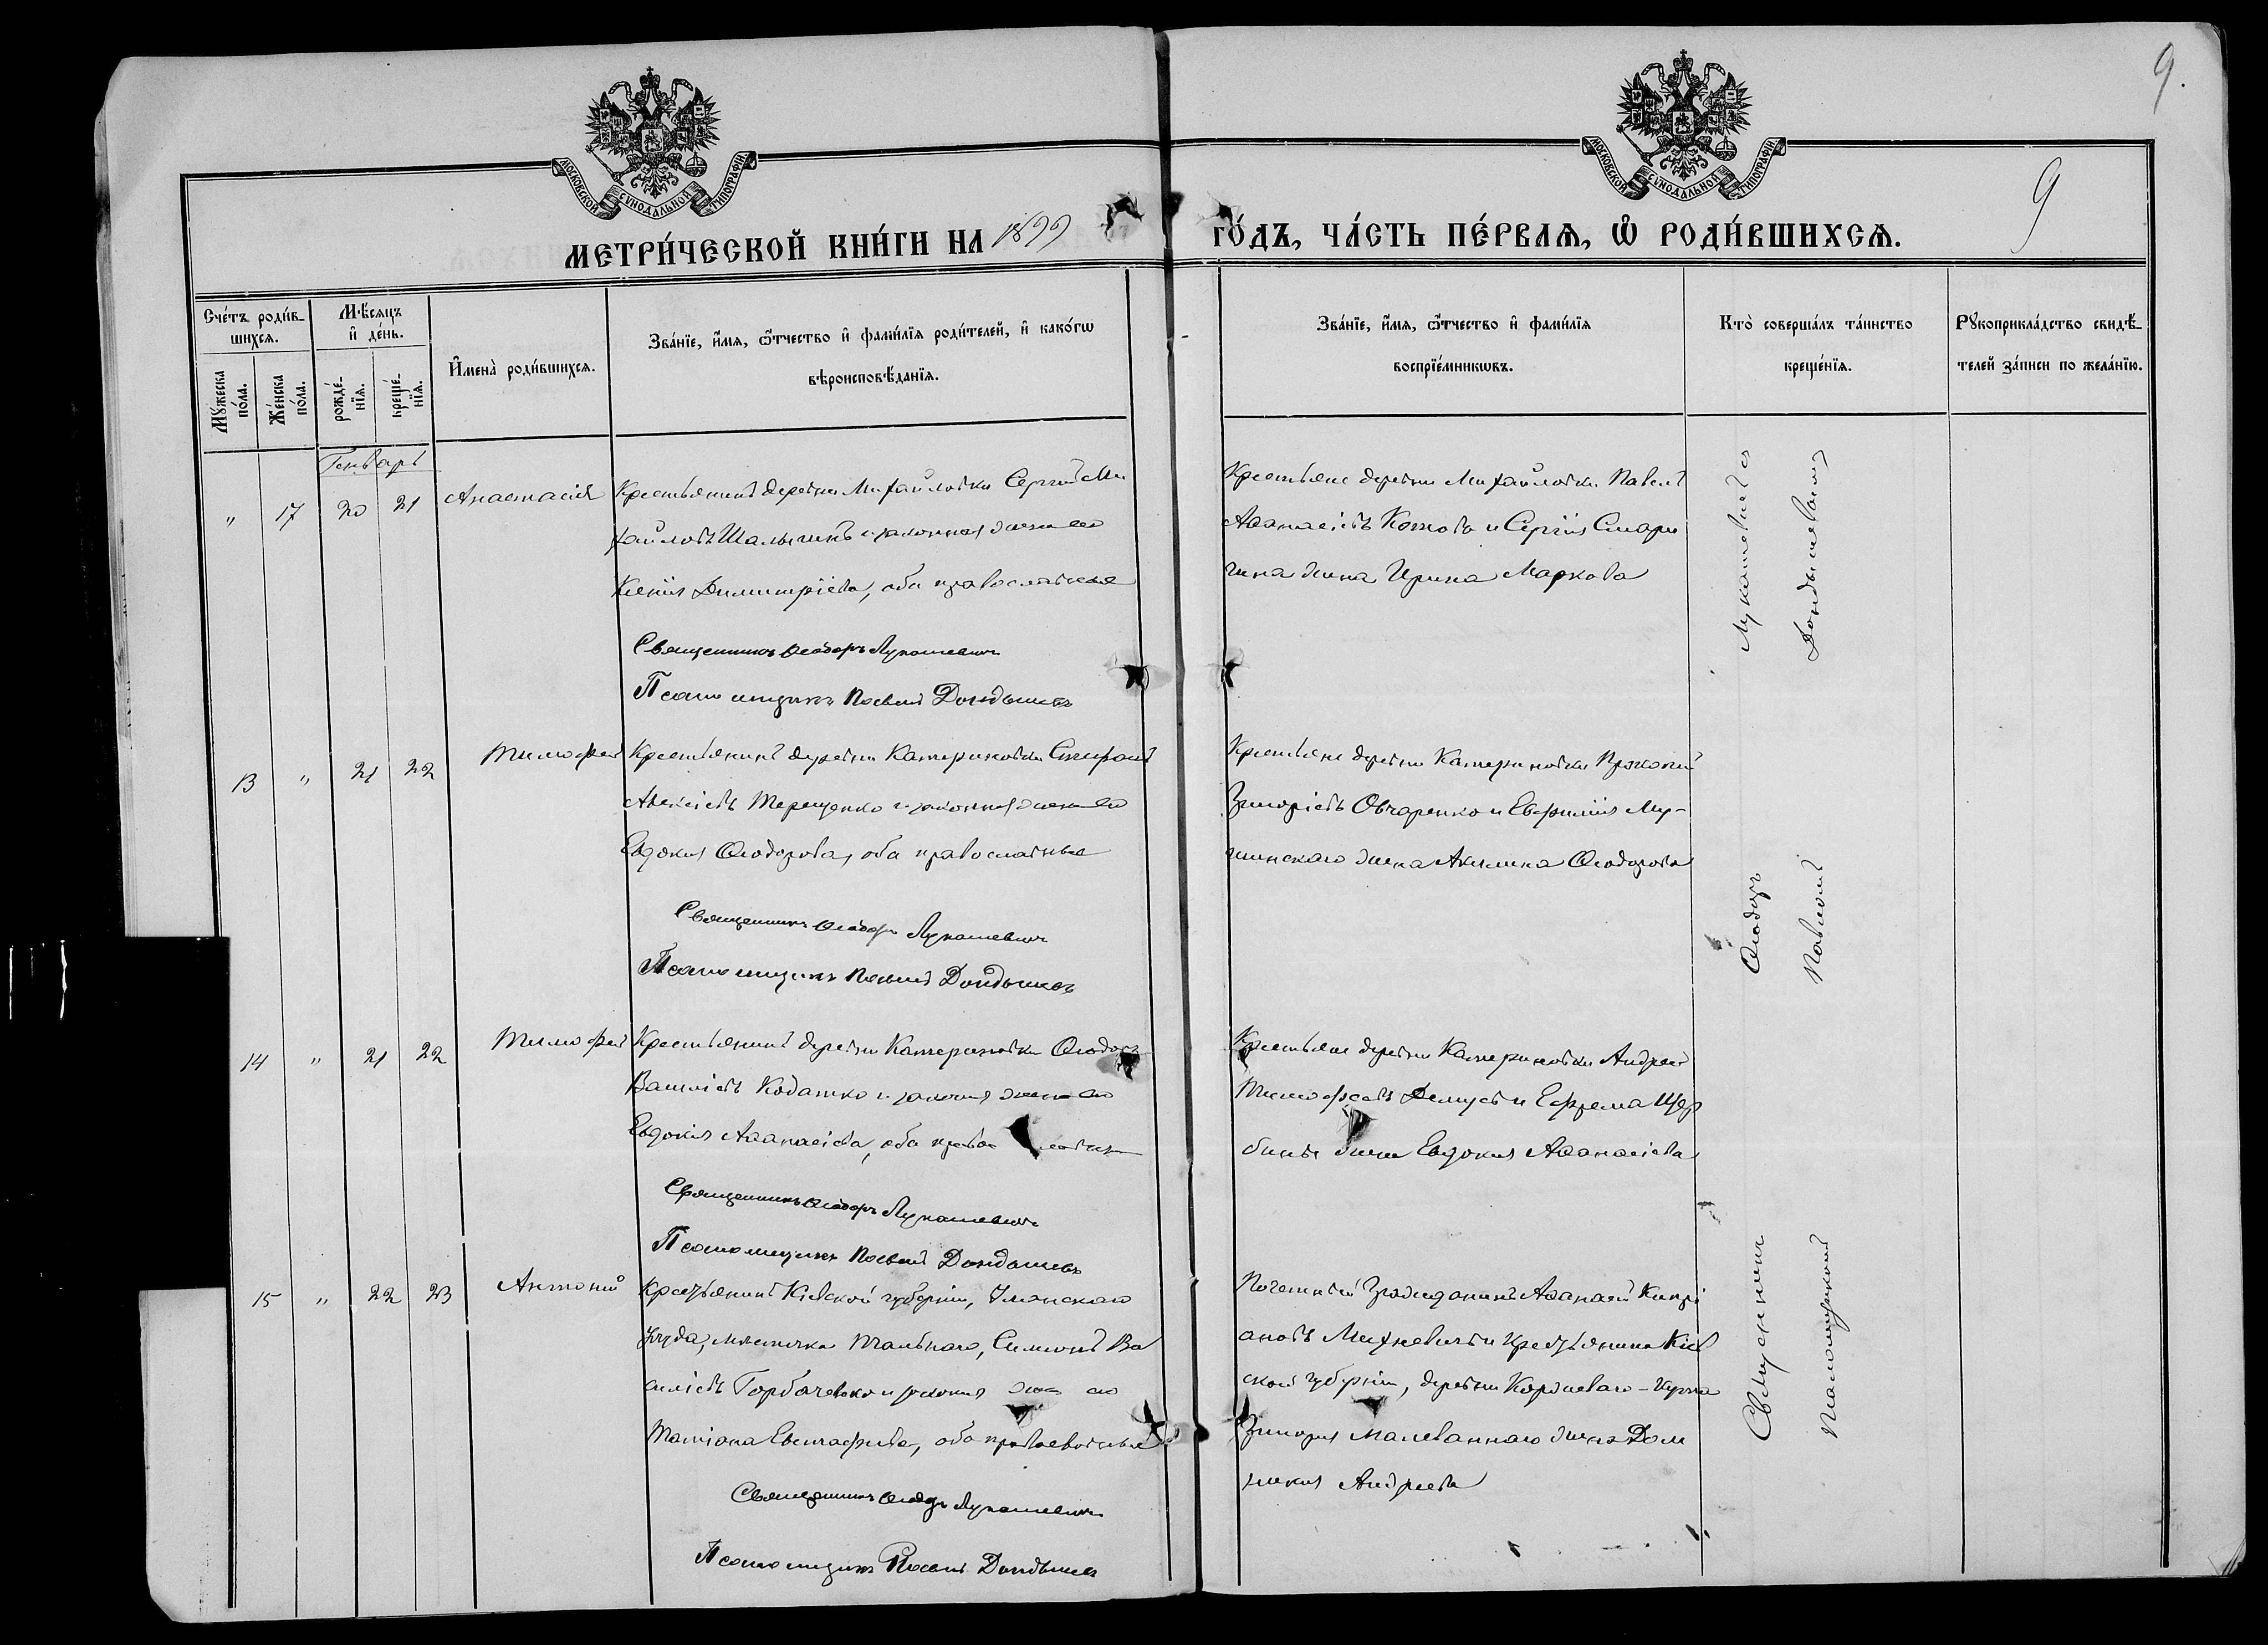 9.
МОСКОВСКОЙ СѴНОДАЛЬНОЙ ТИПОГРАФІИ
МОСКОВСКОЙ СѴНОДАЛЬНОЙ ТИПОГРАФІИ
9
МЕТРИ́ЧЕСКОЙ КНИ́ГИ НА 1899 ГО́ДЪ, ЧА́СТЬ ПЕ́РВАѦ, Ѡ РОДИ́ВШИХСѦ.
Сче́тъ роди́в-
шихсѧ.
Мꙋ́жеска по́ла.
Же́нска по́ла.
Мѣ́сѧцъ и҆ де́нь.
рожде́-
нїѧ.
креще́-
нїѧ.
И҆мена̀ роди́вшихсѧ.
Зва́нїе, и҆́мѧ, ѻ҆́тчество и҆ фами́лїѧ роди́телей, и҆ како́гѡ
вѣроисповѣ́данїѧ.
Зва́нїе, и҆́мѧ, ѻ҆́тчество и҆ фами́лїѧ
воспрїе́мникѡвъ.
Кто̀ соверша́лъ та́инство
креще́нїѧ.
Рꙋкоприкла́дство свидѣ́-
телей за́писи по жела́нїю.
Генварь
" 17 20 21 Анастасія
Крестьянинъ деревни Михайловки Сергій Ми
хайловъ Шалыгинъ и законная жена его
Ксенія Димитріева, оба православные
Священникъ Ѳеодоръ Лукашевичъ
Псаломщикъ Павелъ Дондышевъ
Крестьяне деревни Михайловки Павелъ
Аѳанасіевъ Котовъ и Сергія Смары
гина жена Ирина Маркова
13 " 21 22 Тимофей
Крестьянинъ деревни Катериновки Стефанъ
Алексіевъ Терещенко и законная жена его
Евдокія Ѳеодорова, оба православные
Священникъ Ѳеодоръ Лукашевичъ
Псаломщикъ Павелъ Дондышевъ
Крестьяне деревни Катериновки Прокопій
Григоріевъ Овчаренко и Евфимія Му-
шинскаго жена Акилина Ѳеодорова
14 " 21 22 Тимофей
Крестьянинъ деревни Катериновки Ѳеодоръ
Василіевъ Кодашко и законная жена его
Евдокія Аѳанасіева, оба православные
Священникъ Ѳеодоръ Лукашевичъ
Псаломщикъ Павелъ Дондышевъ
Крестьяне деревни Катериновки Андрей
Тимофеевъ Демусъ и Ефрема Щер
бины жена Евдокія Аѳанасіева
15 " 22 23 Антоній
Крестьянинъ Кіевской губерніи, Уманскаго
уѣзда, мѣстечка Тальнаго, Симеонъ Ва
силіевъ Горбаченко и законная жена его
Татіана Евстафіева, оба православные
Священникъ Ѳеодоръ Лукашевичъ
Псаломщикъ Павелъ Дондышевъ
Почетный Гражданинъ Аѳанасій Кипрі
ановъ Михневичъ и крестьянина Кіев
ской губерніи, деревни Коржеваго-Кута
Григорія Малеваннаго жена Дом
никія Андреева
Священникъ Ѳеодоръ Лукашевичъ съ
Псаломщикомъ Павломъ Дондышевымъ